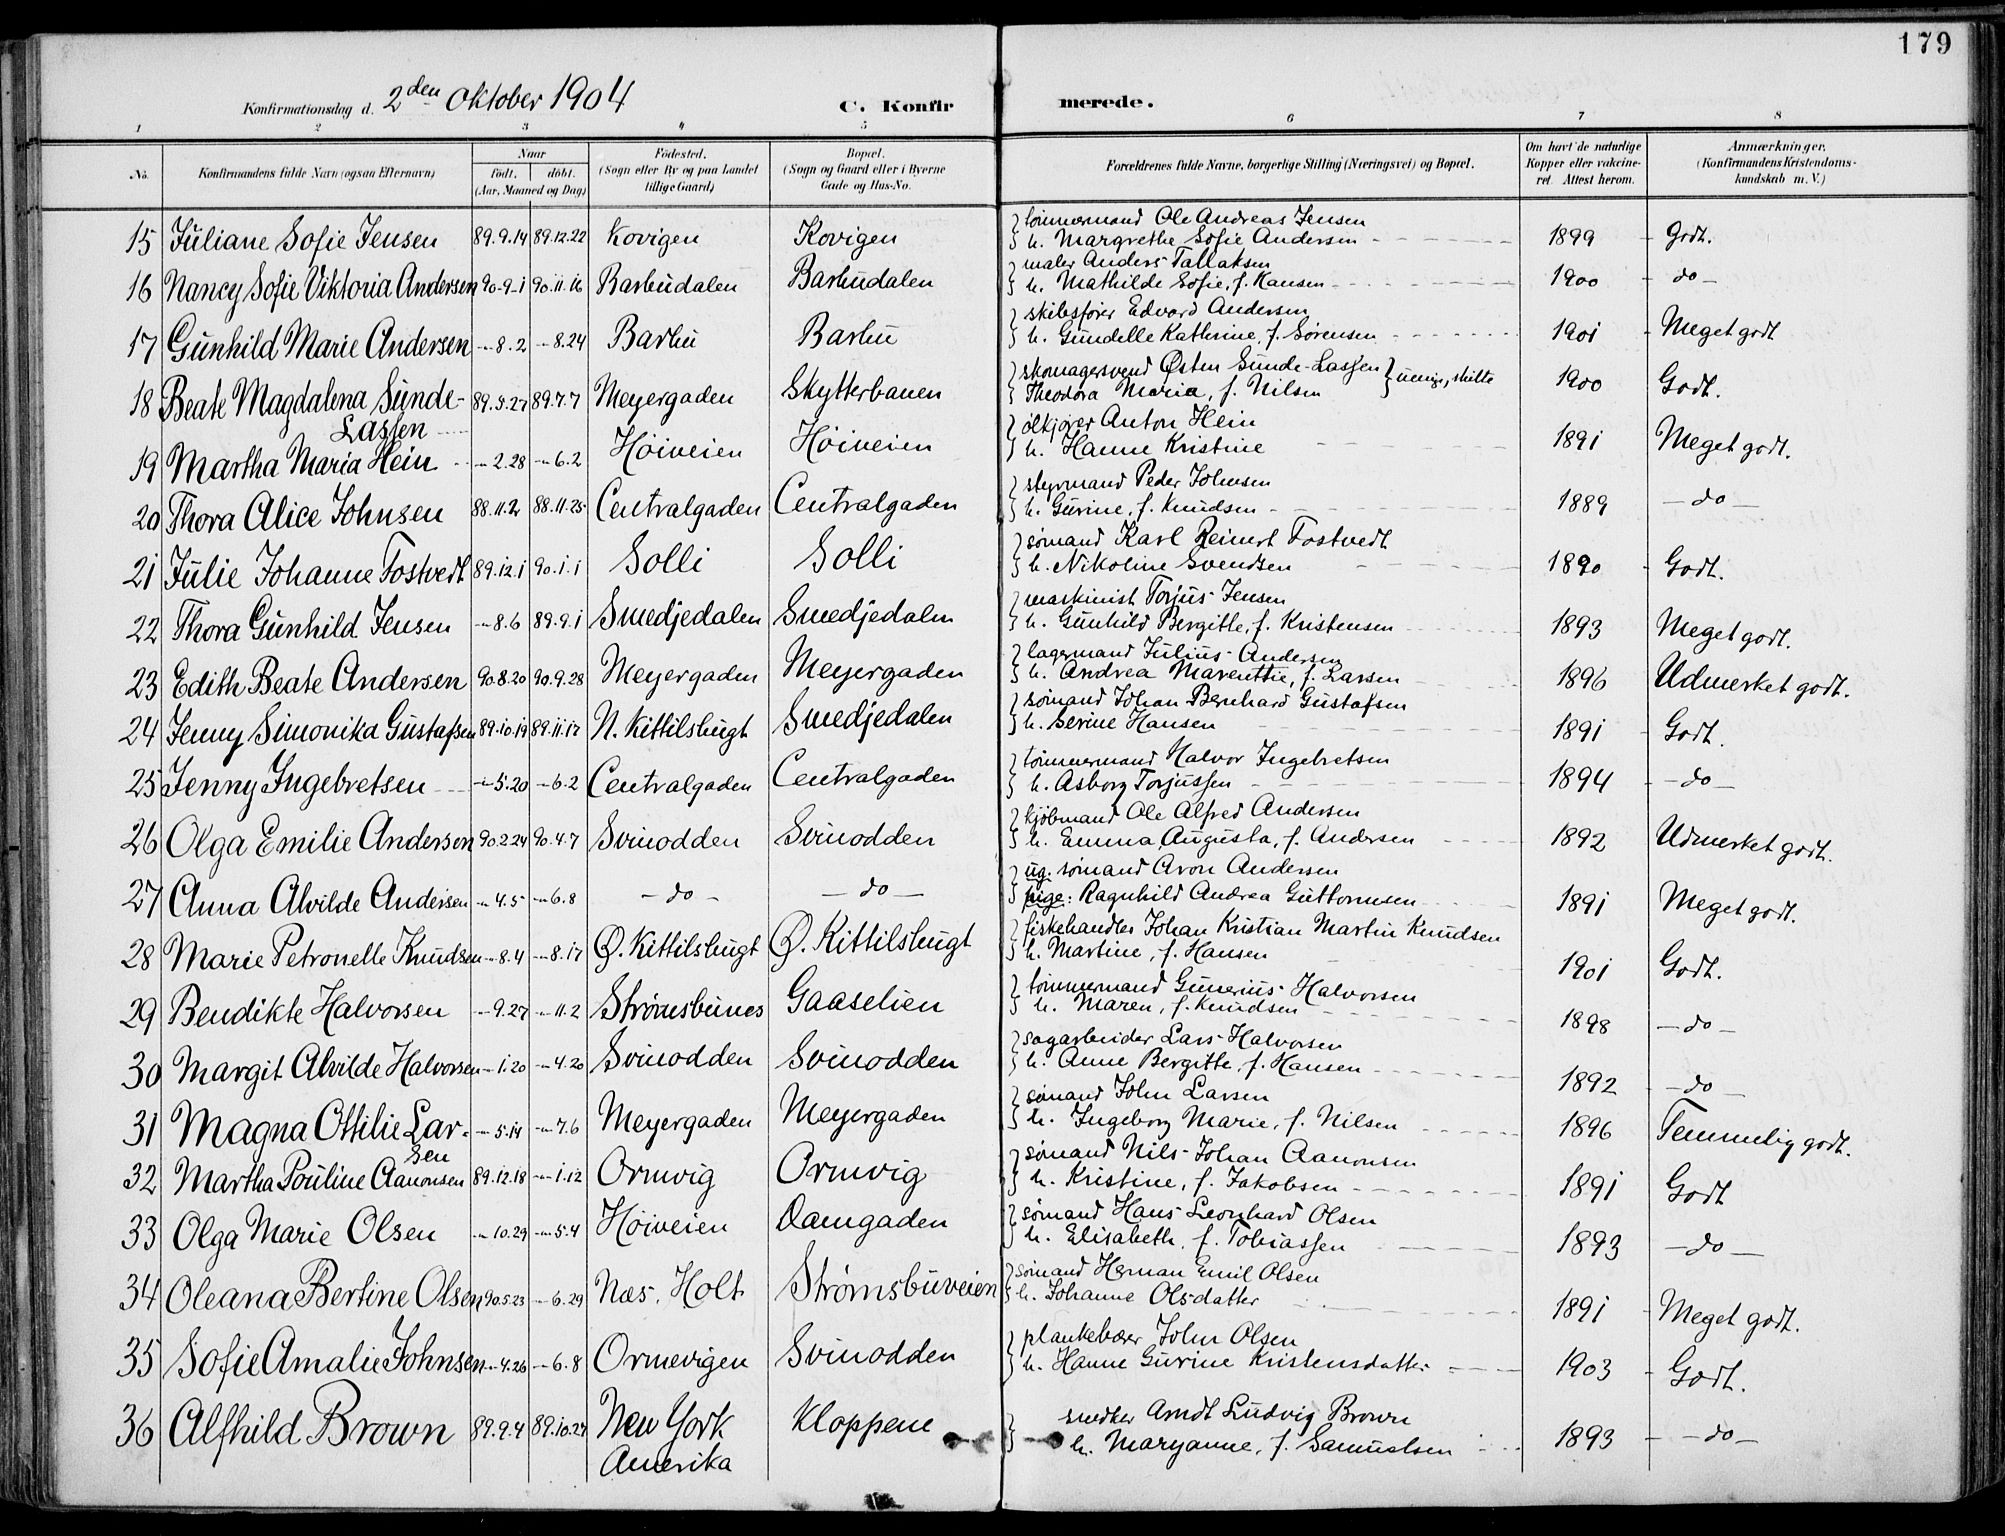 179
Konfirmationsdag d. 2den Oktober 1904 C. Konfirmerede.
1 2 3 4 5 6 7 8
No. Konfirmandens fulde Navn (ogsaa Efternavn) Naar født. døbt. (Aar, Maaned og Dag) Fødested. (Sogn eller By og paa Landet tillige Gaard) Bopæl. (Sogn og Gaard eller i Byerne Gade og Hus-No. Forældrenes fulde Navne, borgerlige Stilling (Næringsvei) og Bopæl. Om havt de naturlige Kopper eller vakcineret. Attest herom. Anmærkninger. (Konfirmandens Kristendomskundskab m. V.)
15 Juliane Sofie Jensen 89.9.14 89.12.22 Kovigen Kovigen tømmermand Ole Andreas Jensen
h. Margrethe Sofie Andersen 1899 Godt.
16 Nancy Sofie Viktoria Andersen 90.9.1 90.11.16 Barbudalen Barbudalen maler Anders Tallaksen
h. Mathilde Sofie, f. Hansen 1900 - do -
17 Gunhild Marie Andersen -"- 8.2 -"- 8.24 Barbu Barbu skibsfører Edvard Andersen
h. Gundelle Kathrine, f. Sørensen 1901 Meget godt
18 Beate Magdalena Sunde- 89.5.27 89.7.7 Meyergaden Skytterbanen skomagersvend Østen Sunde-Lassen
Lassen Theodora Maria, f. Nilsen } uenige, skilte 1900 Godt.
19 Martha Maria Hein -"- 2.28 -"- 6.2 Høiveien Høiveien ølkjører Anton Hein
h. Hanne Kristine 1891 Meget godt.
20 Thora Alice Johnsen 88.11.2 88.11.25 Centralgaden Centralgaden styrmand Peder Johnsen
h. Gurine, f. Knudsen 1889 - do -
21 Julie Johanne Fostvedt 89.12.1 90.1.1 Solli Solli sømand Karl Reinert Fostvedt
h. Nikoline Svendsen 1890 Godt.
22 Thora Gunhild Jensen -"- 8.6 89.9.1 Smedjedalen Smedjedalen maskinist Torjus Jensen
h. Gunhild Bergitte, f. Kristensen 1893 Meget godt.
23 Edith Beate Andersen 90.8.20 90.9.28 Meyergaden Meyergaden lagermand Julius Andersen
h. Andrea Marenttie, f. Larsen 1896 Udmerket godt.
24 Jenny Simonika Gustafsen 89.10.19 89.11.17 N. Kittilsbugt Smedjedalen sømand Johan Bernhard Gustafsen
h. Serine Hansen 1891 Godt.
25 Jenny Ingebretsen -"- 5.20 -"- 6.2 Centralgaden Centralgaden tømmermand Halvor Ingebretsen
h. Asborg Torjussen 1894 - do -
26 Olga Emilie Andersen 90.2.24 90.4.7 Svinodden Svinodden kjøbmand Ole Alfred Andersen
h. Emma Augusta, f. Andersen 1892 Udmerket godt.
27 Anna Alvilde Andersen -"- 4.5 -"- 6.8 - do - - do - ug. sømand Aron Andersen
pige: Ragnhild Andrea Guttormsen 1891 Meget godt.
28 Marie Petronelle Knudsen -"- 8.4 -"- 8.17 Ø. Kittilsbugt Ø. Kittilsbugt fiskehandler Johan Kristian Martin Knudsen
h. Martine, f. Hansen 1901 Godt.
29 Bendikte Halvorsen -"- 9.27 -"- 11.2 Strømsbunes Gaaselien tømmermand Gunerius Halvorsen
h. Maren, f. Knudsen 1898 - do -
30 Margit Alvilde Halvorsen -"- 1.20 -"- 4.20 Svinodden Svinodden sagarbeider Lars Halvorsen
h. Anne Bergitte, f. Hansen 1892 - do -
31 Magna Ottilie Lar- -"- 5.14 -"- 7.6 Meyergaden Meyergaden sømand John Larsen
sen h. Ingeborg Marie, f. Nilsen 1896 Temmelig godt.
32 Martha Pouline Aanonsen 89.12.18 -"- 1.12 Ormvig Ormvig sømand Nils Johan Aanonsen
h. Kristine, f. Jakobsen 1891 Godt
33 Olga Marie Olsen -"- 10.29 -"- 5.4 Høiveien Damgaden sømand Hans Leonhard Olsen
h. Elisabeth, f. Tobiassen 1893 - do -
34 Oleana Bertine Olsen 90.5.23 -"- 6.29 Næs, Holt Strømsbuveien sømand Herman Emil Olsen
h. Johanne Olsdatter 1891 Meget godt.
35 Sofie Amalie Johnsen -"- 4.26 -"- 6.8 Ormevigen Svinodden plankebærer John Olsen
h. Hanne Gurine Kristensdatter 1903 Godt.
36 Alfhild Brown 89.9.4 89.10.27 New York Kloppene snedker Arndt Ludvig Brown
Amerika h. Maryanne, f. Samuelsen 1893 - do -